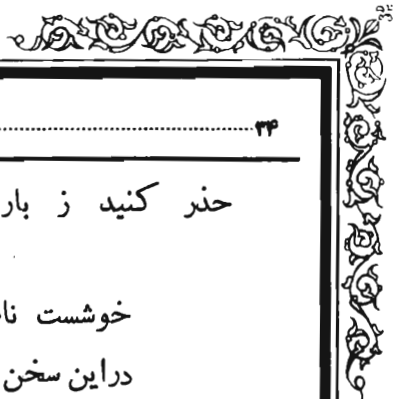 ۳۴
حذر کنید ز
خوشست
دراین سخن